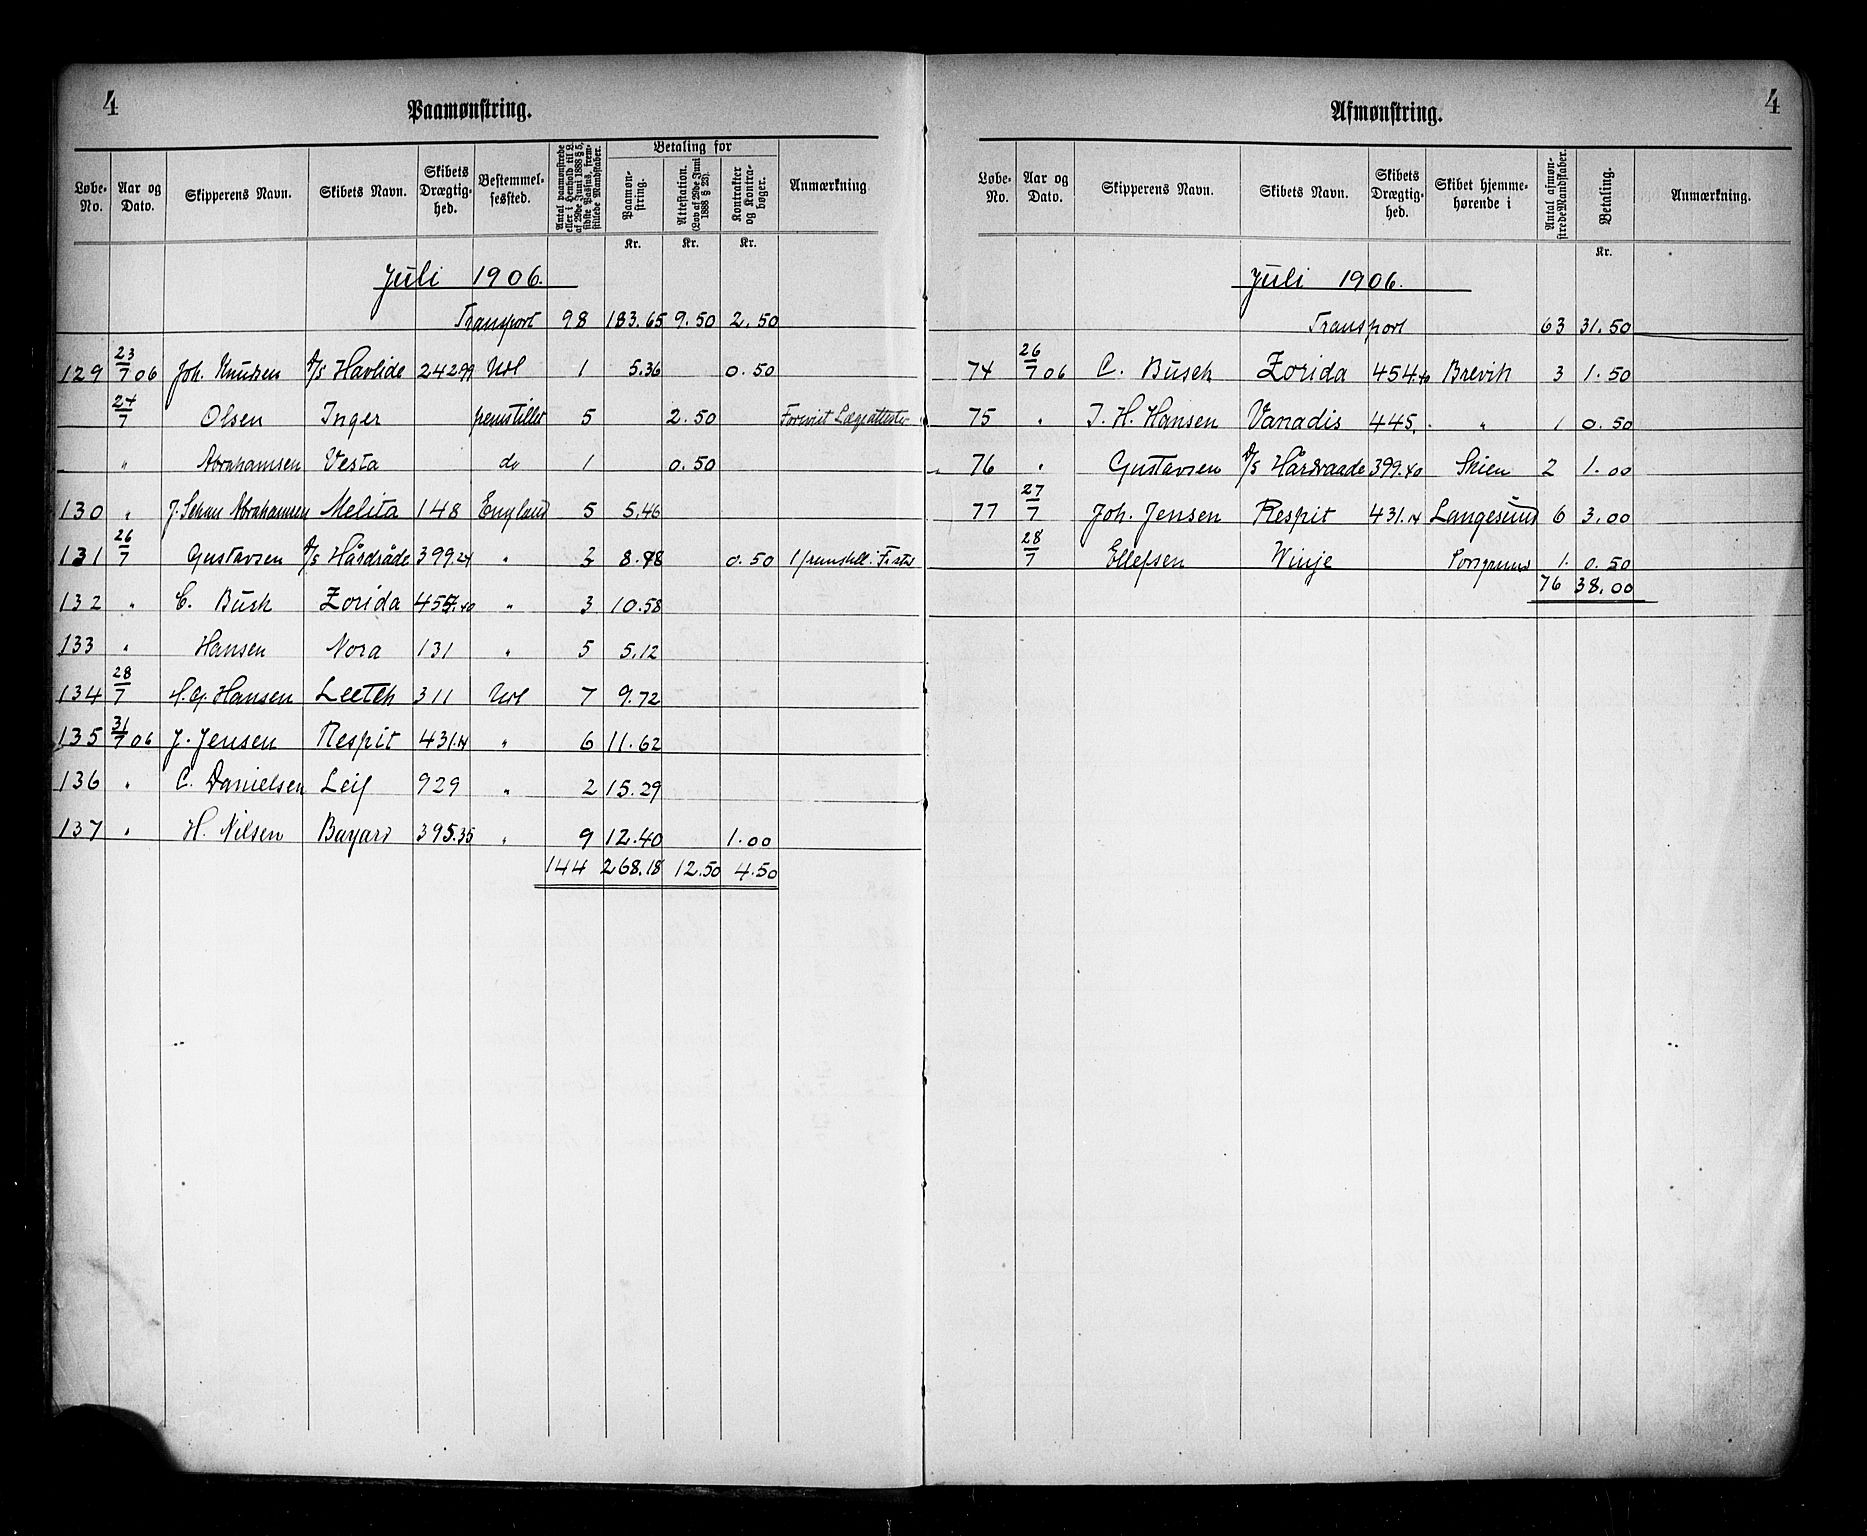 4
Paamønstring.
Løbe-No. | Aar og Dato. | Skipperens Navn. | Skibets Navn. | Skibets Drægtighed. | Bestemmelsessted. | Antal paamønstrede eller i Henhold til L. af 29de Juni 1888 § 5, sidste Passus, fremstillede Mandskaber. | Betaling for | Paamønstring. Kr. | Attestation. (Lov af 29de Juni 1888 § 23). Kr. | Kontrakter og Kontrabøger. Kr. | Anmærkning
Juli 1906.
Transport 98 183.65 9.50 2.50
129 23/7 06 Joh. Knudsen A/S Havlide 242.99 Udl 1 5.36 0.50
24/7 Olsen Inger fremstillet 5 2.50 Forevist Lægeattester
" Abrahamsen Vesta do 1 0.50
130 " J. Schau Abrahamsen Melita 148 England 5 5.46
131 26/7 Gustavsen A/S Hårdråde 399.24 " 2 8.98 0.50 1 fremstill.
132 " C. Bush Zorida 454.40 " 3 10.58
133 " Hansen Nora 131 " 5 5.12
134 28/7 H. G. Hansen Leetch 311 Udl 7 9.72
135 31/7 06 J. Jensen Respit 431.14 " 6 11.62
136 " C. Danielsen Leif 929 " 2 15.29
137 " H. Nilsen Bayard 395.35 " 9 12.40 1.00
144 268.18 12.50 4.50
4
Afmønstring.
Løbe-No. | Aar og Dato. | Skipperens Navn. | Skibets Navn. | Skibets Drægtighed. | Skibet hjemmehørende i | Antal afmønstrede Mandskaber. | Betaling. Kr. | Anmærkning.
Juli 1906.
Transport 63 31.50
74 26/7 06 C. Busch Zorida 454.40 Brevik 3 1.50
75 " J. H. Hansen Vanadis 445. " 1 0.50
76 " Gustavsen A/S Hårdraade 399.40 Skien 2 1.00
77 27/7 Joh. Jensen Respit 431.14 Langesund 6 3.00
28/7 Ellefsen Winje Porsgrund 1. 0.50
76 38.00